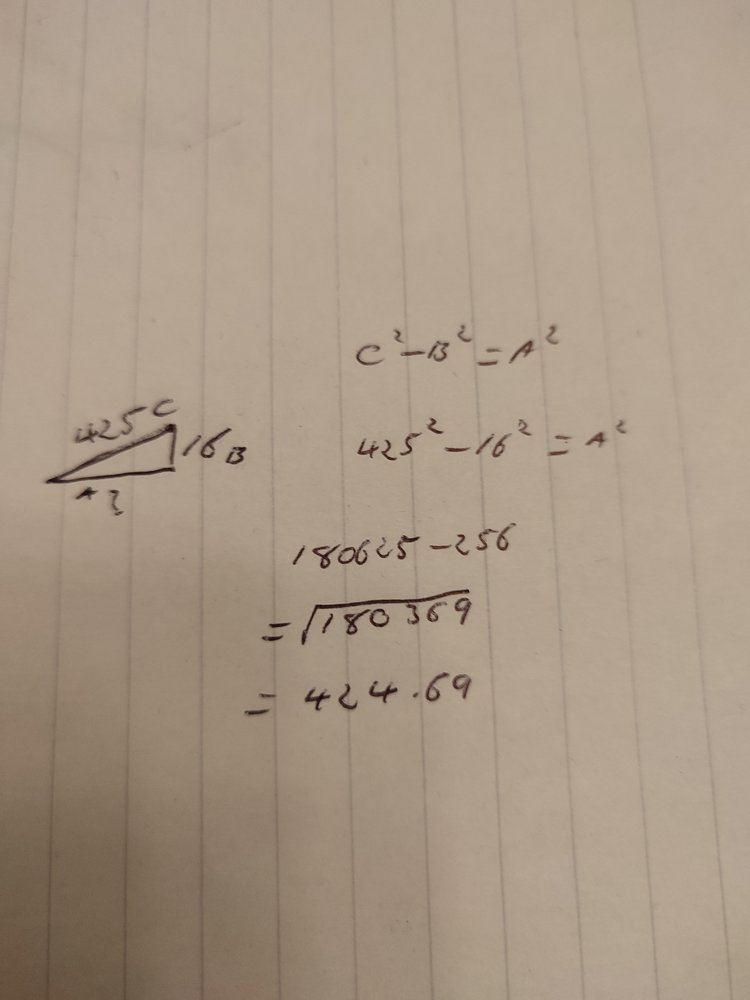 C² - B² = A²
425 C
16 B
A ?
425² - 16² = A²
180625 - 256
= √180369
= 424.69